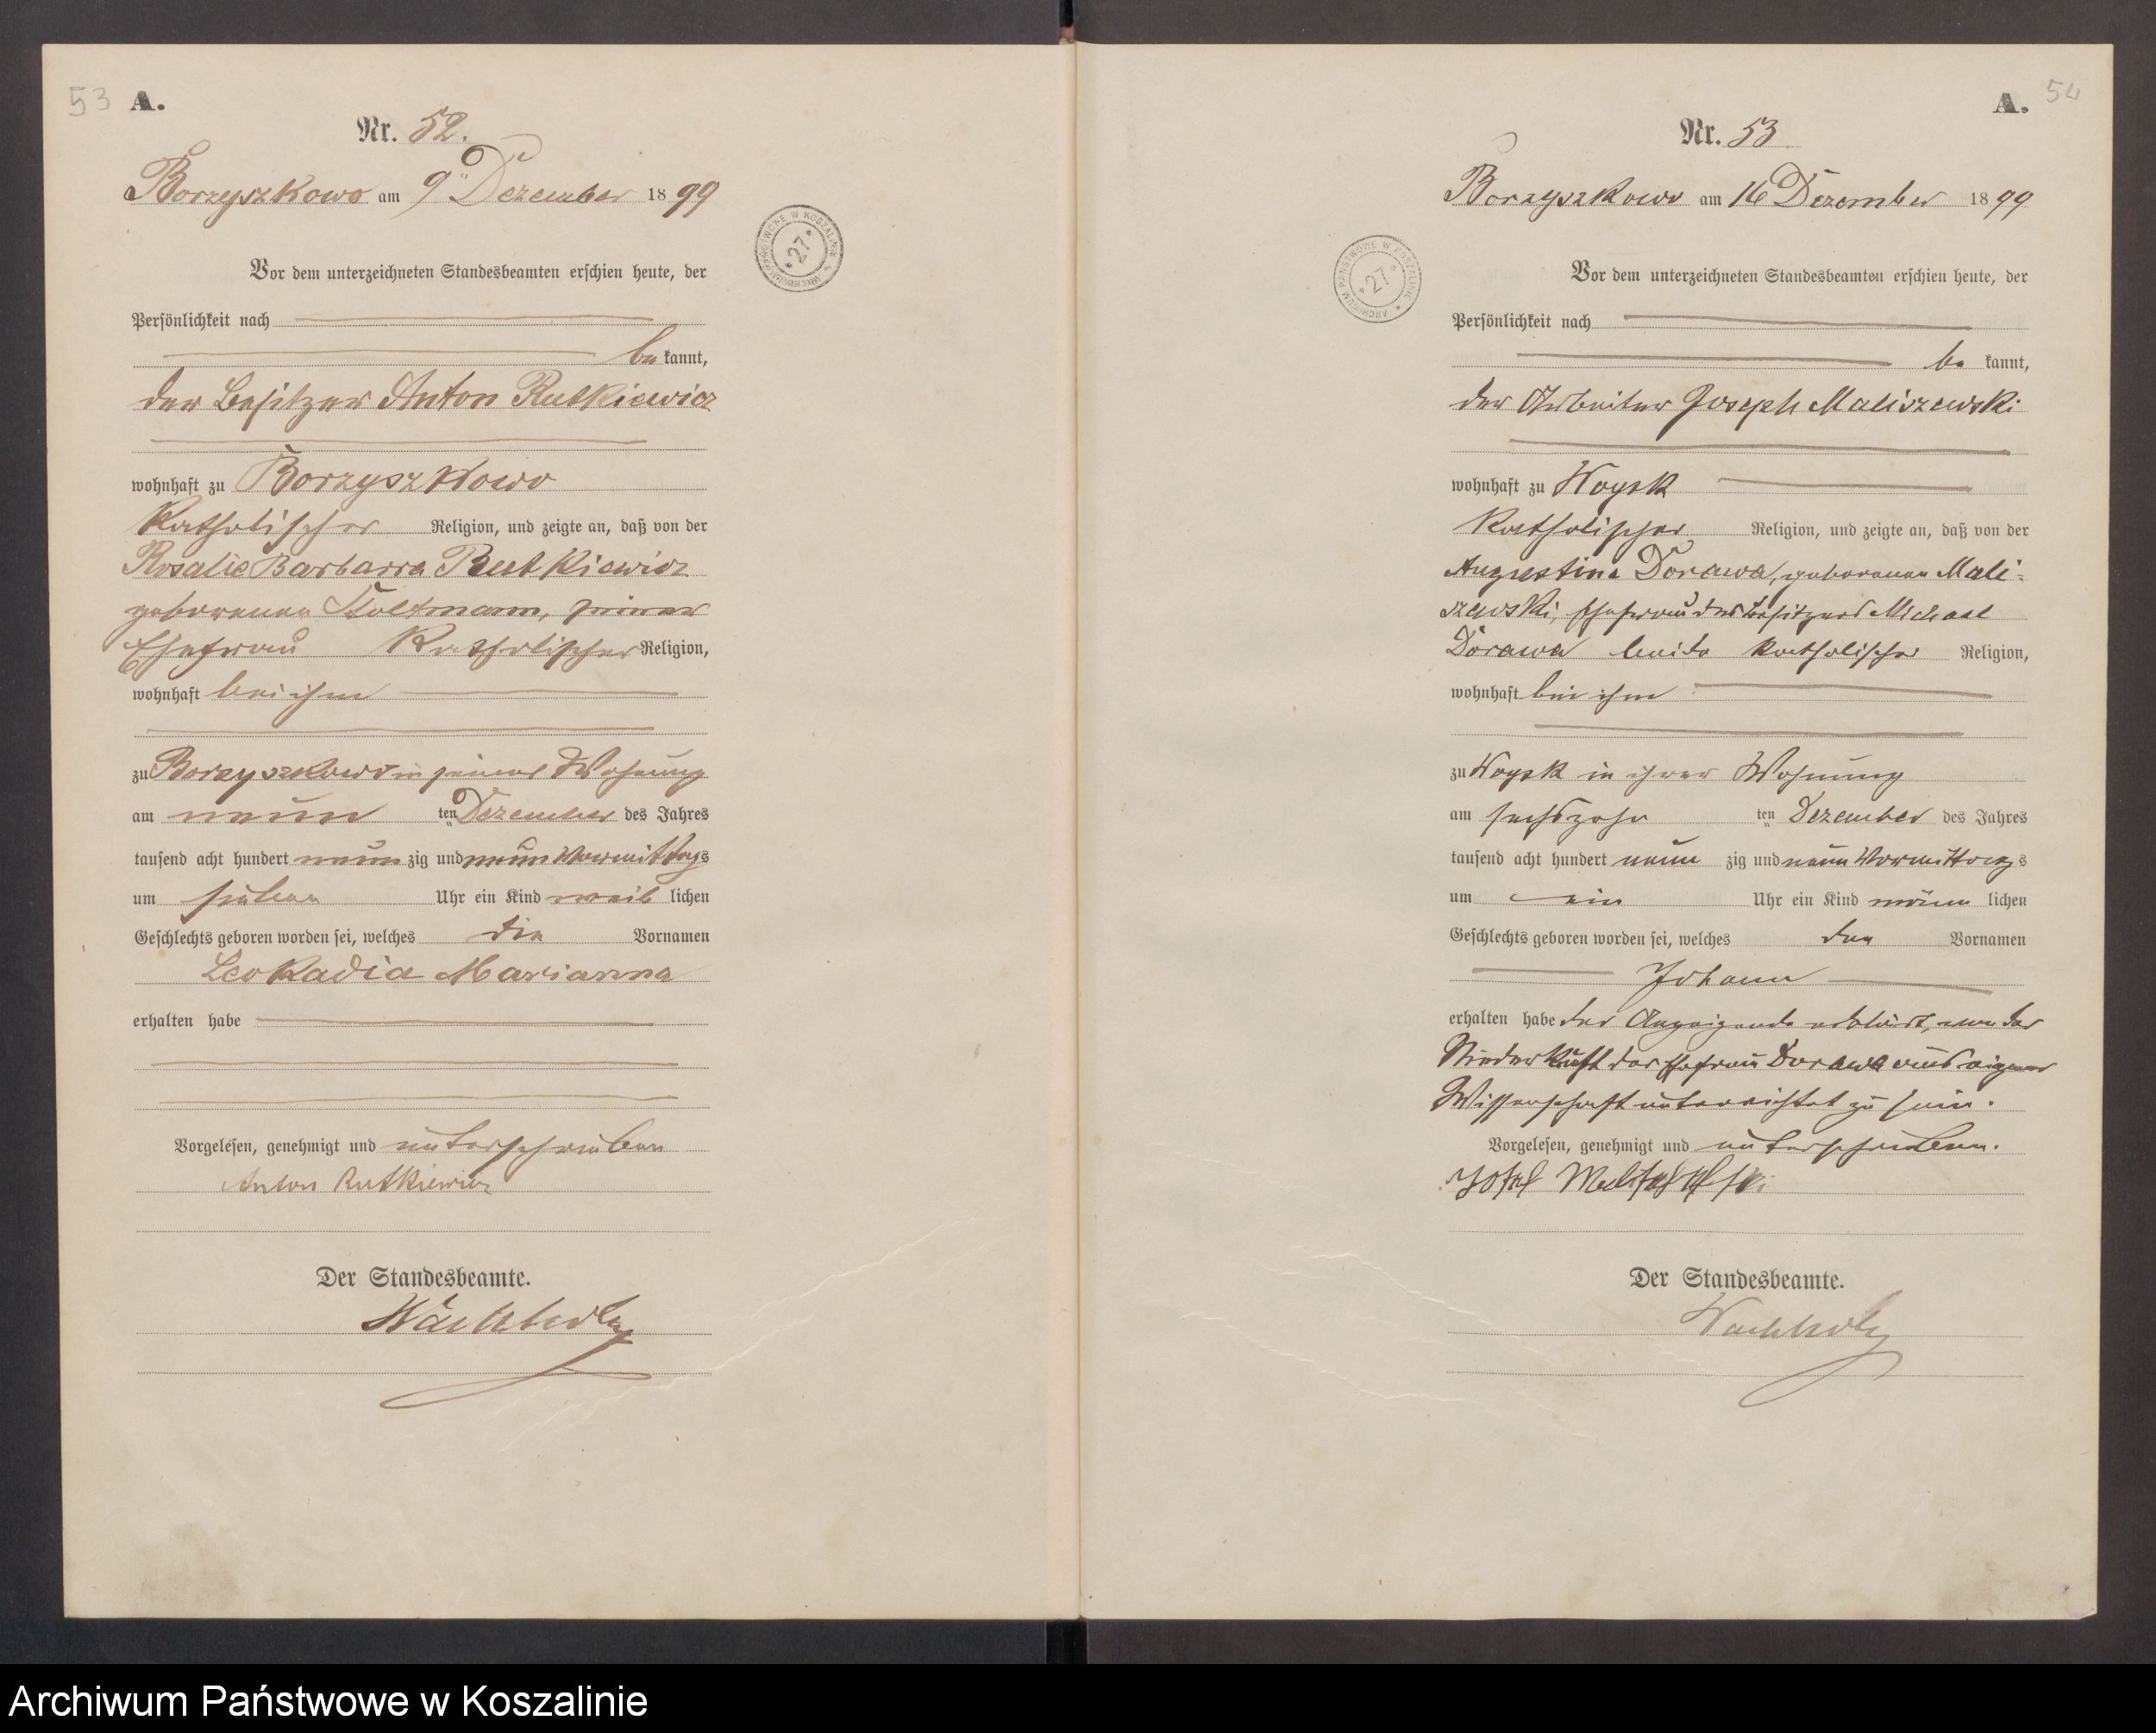 53 A.
Nr. 52.
Borzyszkowo am 9ten Dezember 1899
ARCHIWUM PAŃSTWOWE W KOSZALINIE * 27 *
Vor dem unterzeichneten Standesbeamten erschien heute, der
Persönlichkeit nach
bekannt,
der Besitzer Anton Rutkiewicz
wohnhaft zu Borzyszkowo
katholischer Religion, und zeigte an, daß von der
Rosalie Barbarra Rutkiewicz
geborenen Stoltmann, seiner
Ehefrau katholischer Religion,
wohnhaft bei ihm
zu Borzyszkowo in seiner Wohnung
am neun ten Dezember des Jahres
tausend acht hundert neunzig und neun Vormittags
um sieben Uhr ein Kind weiblichen
Geschlechts geboren worden sei, welches die Vornamen
Leokadia Marianna
erhalten habe
Vorgelesen, genehmigt und unterschrieben
Anton Rutkiewicz
Der Standesbeamte.
Wachholz
A. 54
Nr. 53
Borzyszkowo am 16 Dezember 1899
ARCHIWUM PAŃSTWOWE W KOSZALINIE * 27 *
Vor dem unterzeichneten Standesbeamten erschien heute, der
Persönlichkeit nach
bekannt,
der Arbeiter Joseph Maliszewski
wohnhaft zu Woysk
katholischer Religion, und zeigte an, daß von der
Augustine Dorawa, geborenen Mali-
szewski, Ehefrau des Besitzers Michael
Dorawa beide katholischer Religion,
wohnhaft bei ihm
zu Woysk in ihrer Wohnung
am sechszehn ten Dezember des Jahres
tausend acht hundert neunzig und neun Vormittags
um ein Uhr ein Kind männlichen
Geschlechts geboren worden sei, welches den Vornamen
Johann
erhalten habe der Anzeigende erklärt, von der
Niederkuft der Ehefrau Dorawa aus eigener
Wissenschaft unterrichtet zu sein.
Vorgelesen, genehmigt und unterschrieben.
Josef
Der Standesbeamte.
Wachholz
Archiwum Państwowe w Koszalinie